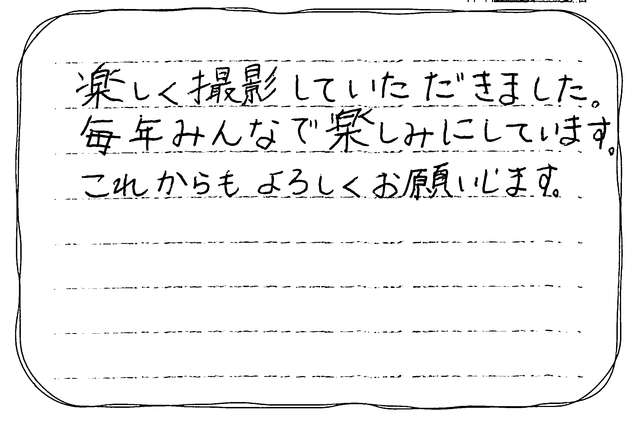 楽しく撮影していただきました。
毎年みんなで楽しみにしています。
これからもよろしくお願いします。